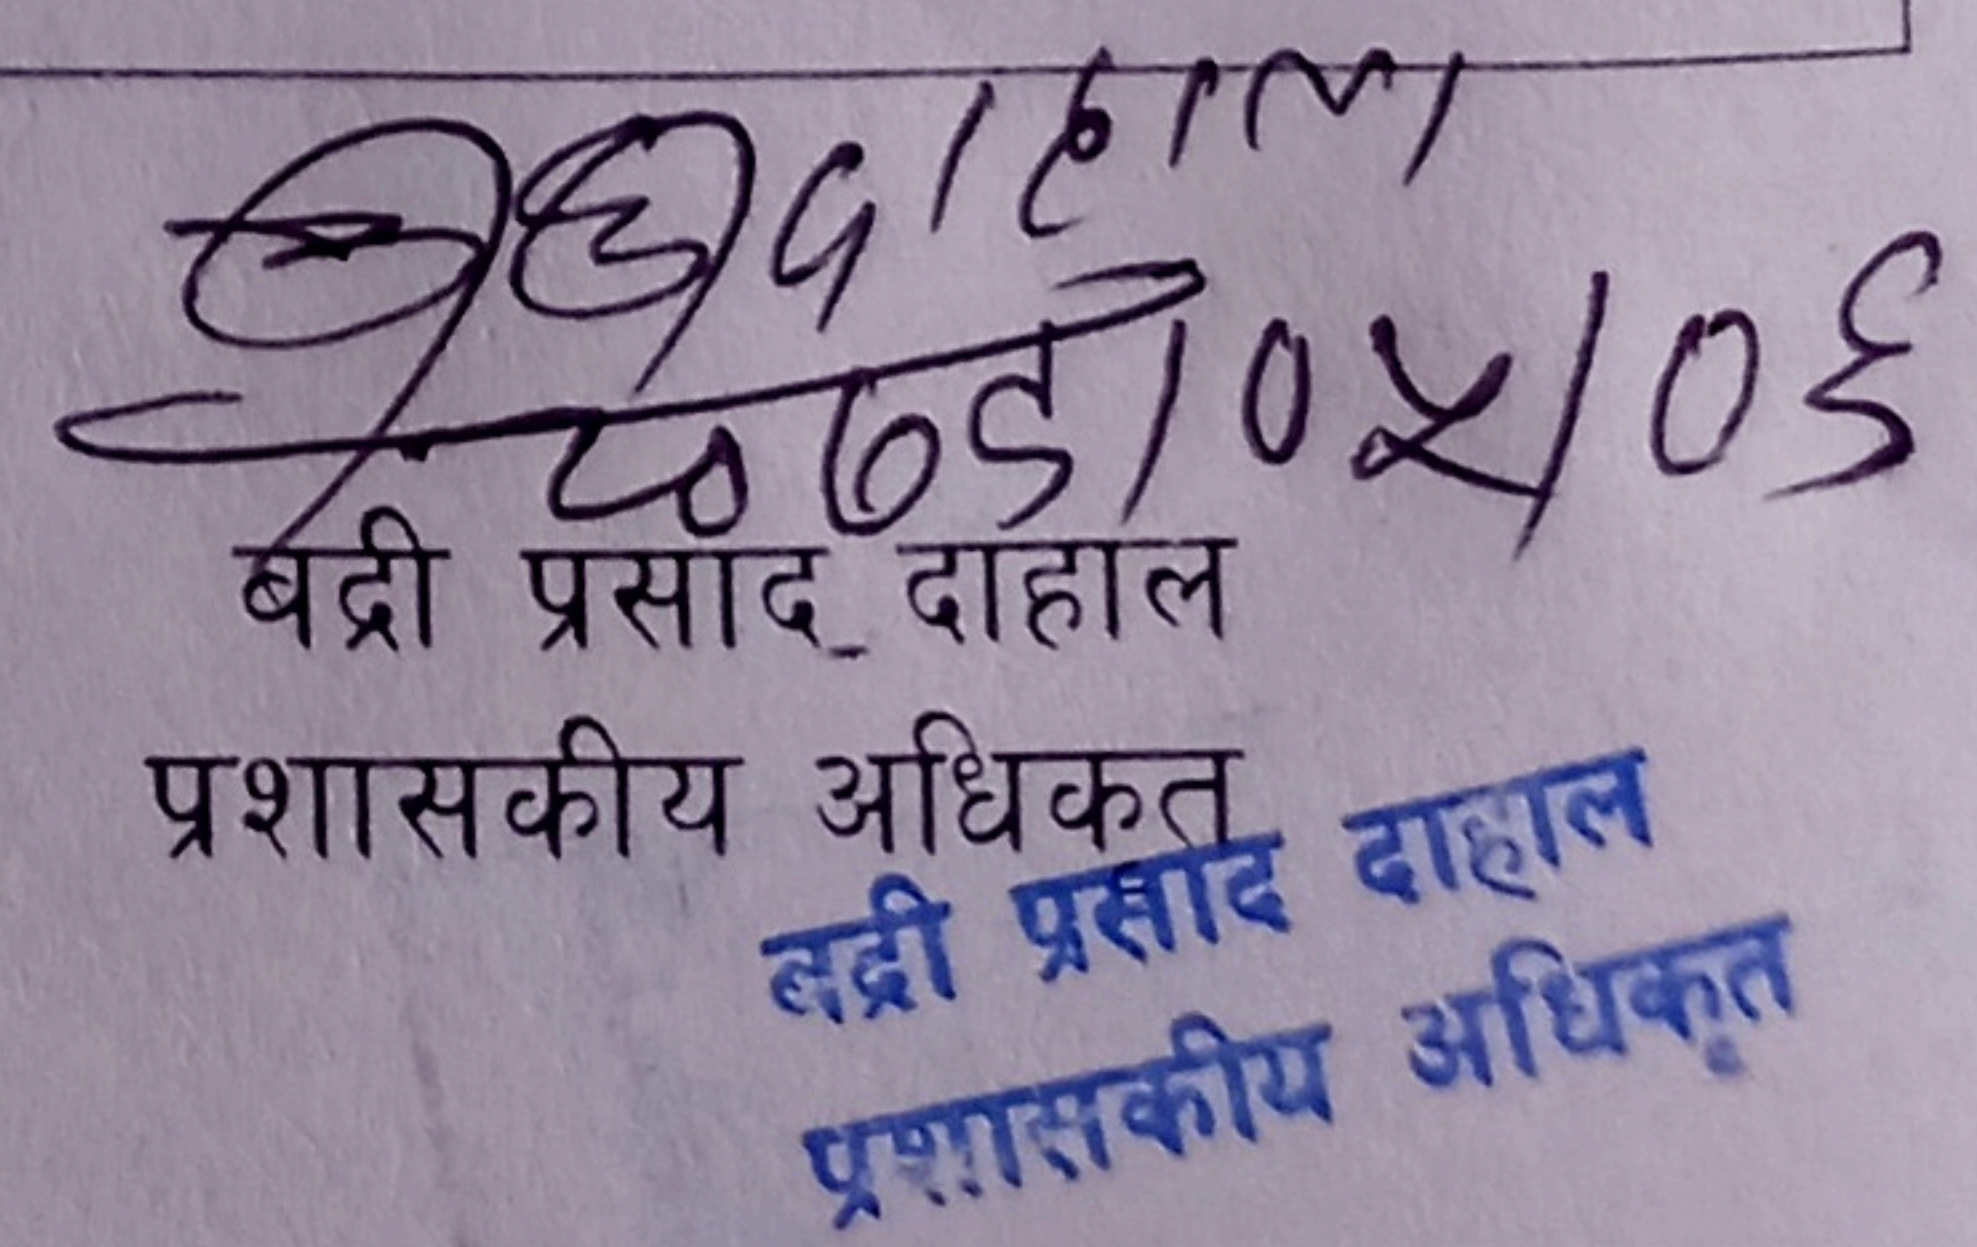 दाहाल
२०७९/०५/०६
बद्री प्रसाद दाहाल
प्रशासकीय अधिकत
बद्री प्रसाद दाहाल
प्रशासकीय अधिकृत